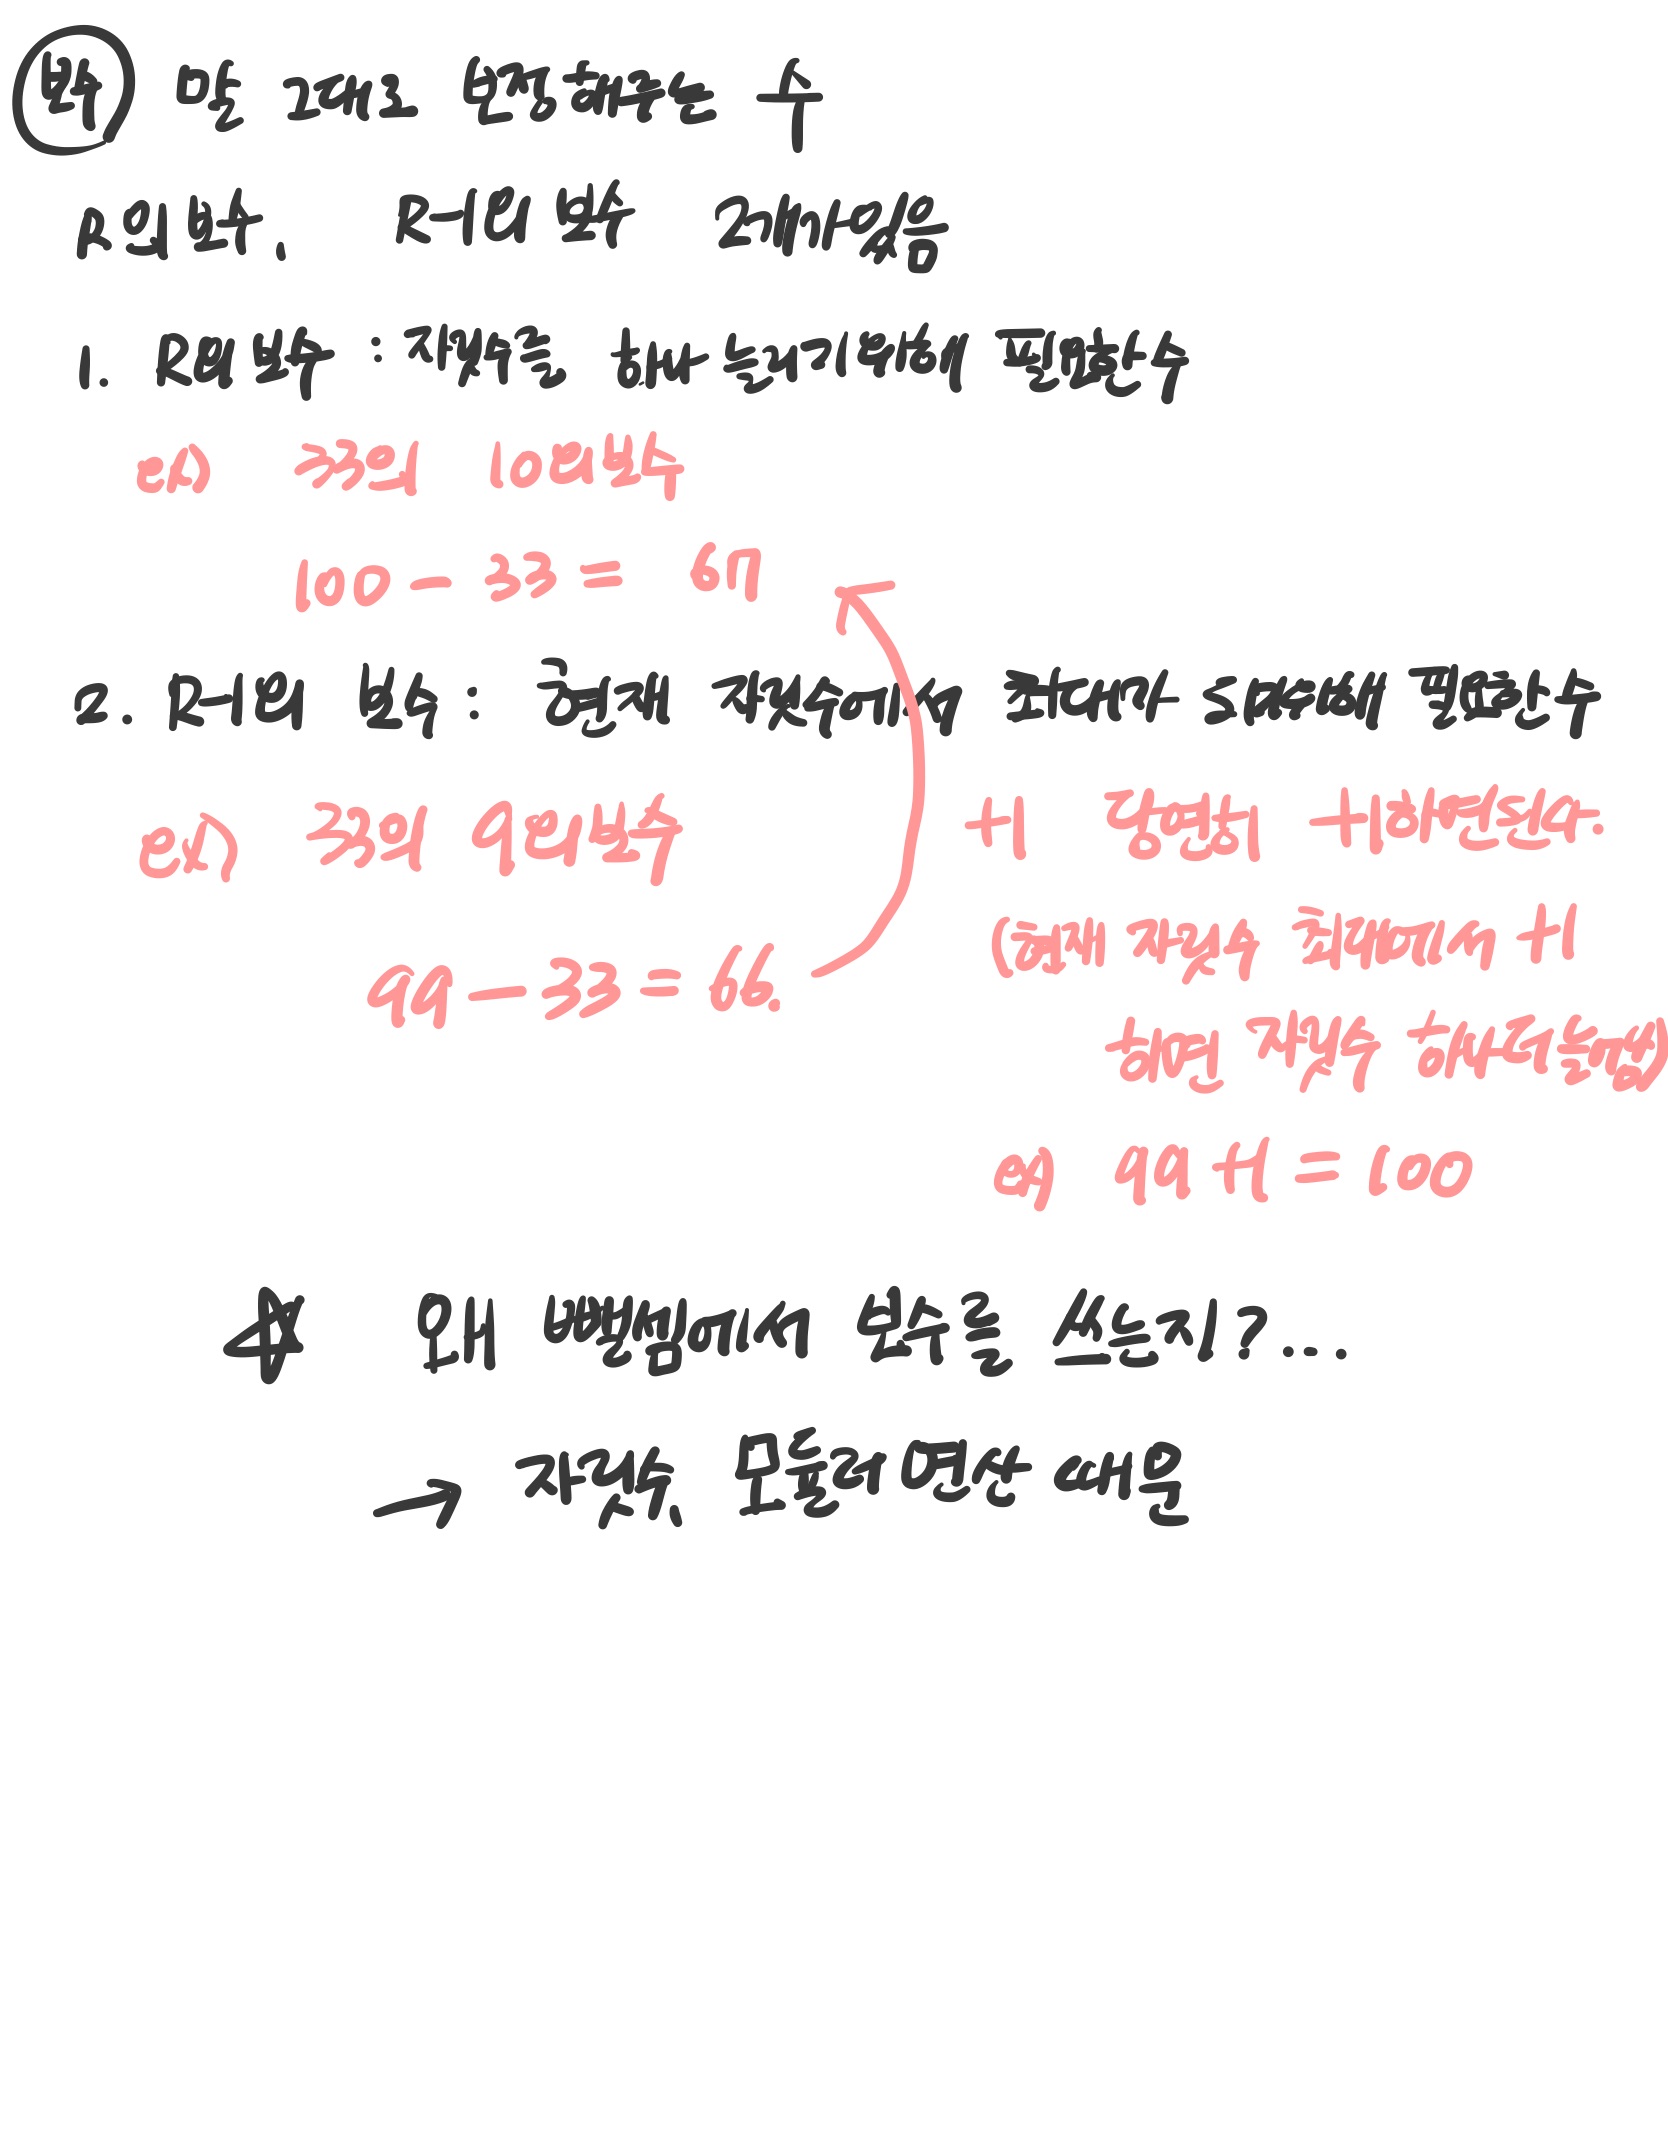 보수 말 그대로 보정해주는 수
R의 보수, R-1의 보수 2개가 있음
1. R의 보수 : 자릿수를 하나 늘리기 위해 필요한 수
ex) 33의 10의 보수
100 - 33 = 67
2. R-1의 보수 : 현재 자릿수에서 최대가 되기 위해 필요한 수
ex) 33의 9의 보수
+1 당연히 +1하면 된다.
(현재 자릿수 최대에서 +1
99 - 33 = 66.
하면 자릿수 하나 더 늘어남)
ex) 99 + 1 = 100
☆ 왜 뺄셈에서 보수를 쓰는지?...
→ 자릿수, 모듈러 연산 때문